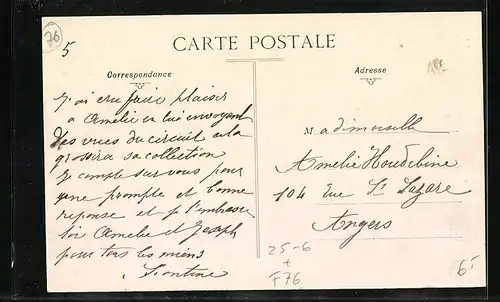 76
5
CARTE POSTALE
Correspondance
Adresse
J'ai cru faire plaisir
a Amelie en lui envoyant
des vues du circuit cela
grossira sa collection
Je compte sur vous pour
une prompte et bonne
reponse et je t'embrasse
toi Amelie et Joseph
pour tous les miens
Leontine
M. ademoiselle
Amelie Houdebine
104 Rue St Lazare
Angers
25-6
+
F76
65